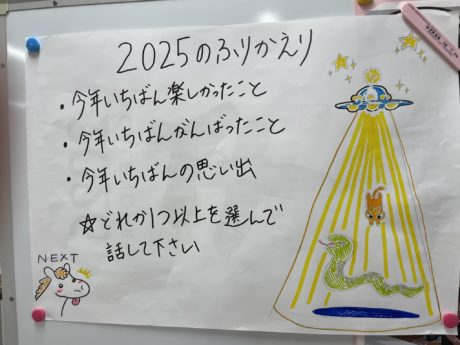 2025のふりかえり
・今年いちばん楽しかったこと
・今年いちばんがんばったこと
・今年いちばんの思い出
☆どれか1つ以上を選んで
話して下さい
NEXT